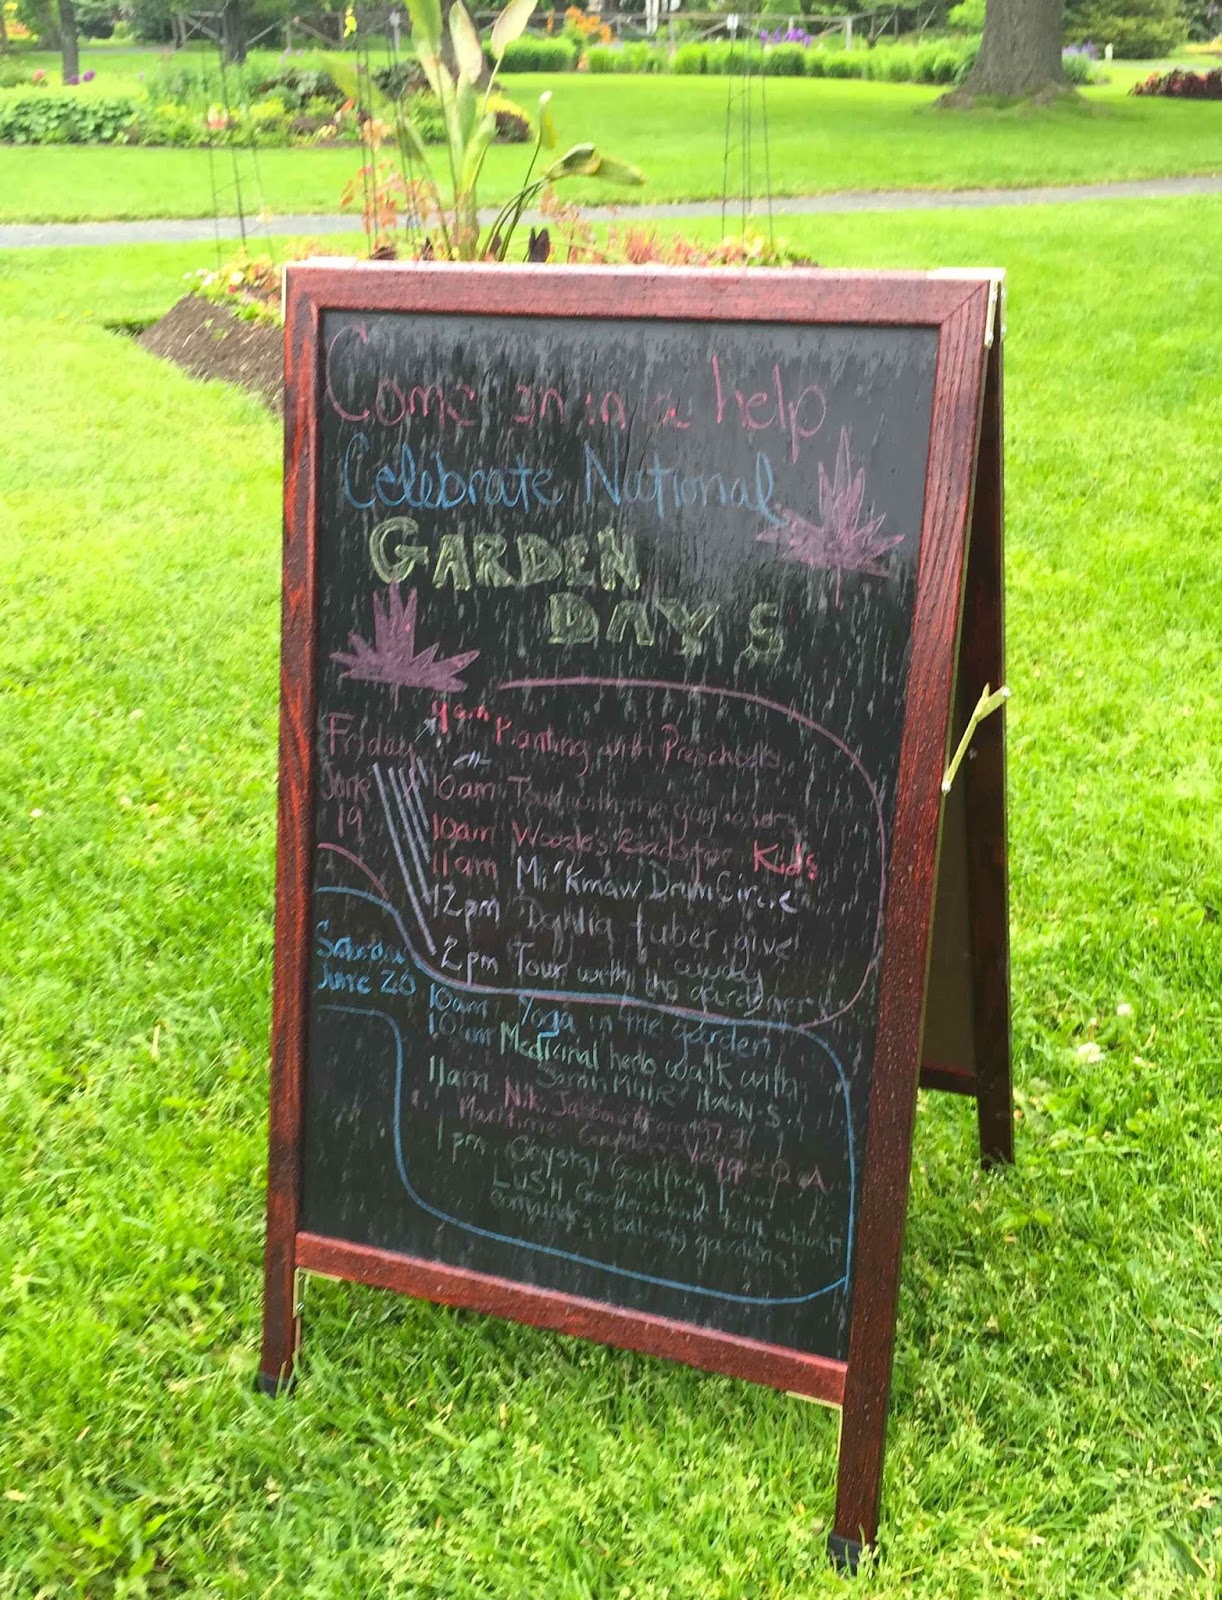 Come on in a help
Celebrate National
GARDEN
DAYS
Friday
June
19
9am Planting with Preschools
10am Tour with the
10am Woozles Reads for Kids
11am Mi'Kmaw Drum Circle
12pm Dahlia tuber give
away
2pm Tour with the gardener
Saturday
June 20
10am Yoga in the garden
10am Medicinal herb walk with
Saran
11am Niki Jabbour from
Maritime Gardener Veggie Q&A
1pm Crystal Godfrey from
LUSH Gardens talk about
container, balcony gardens